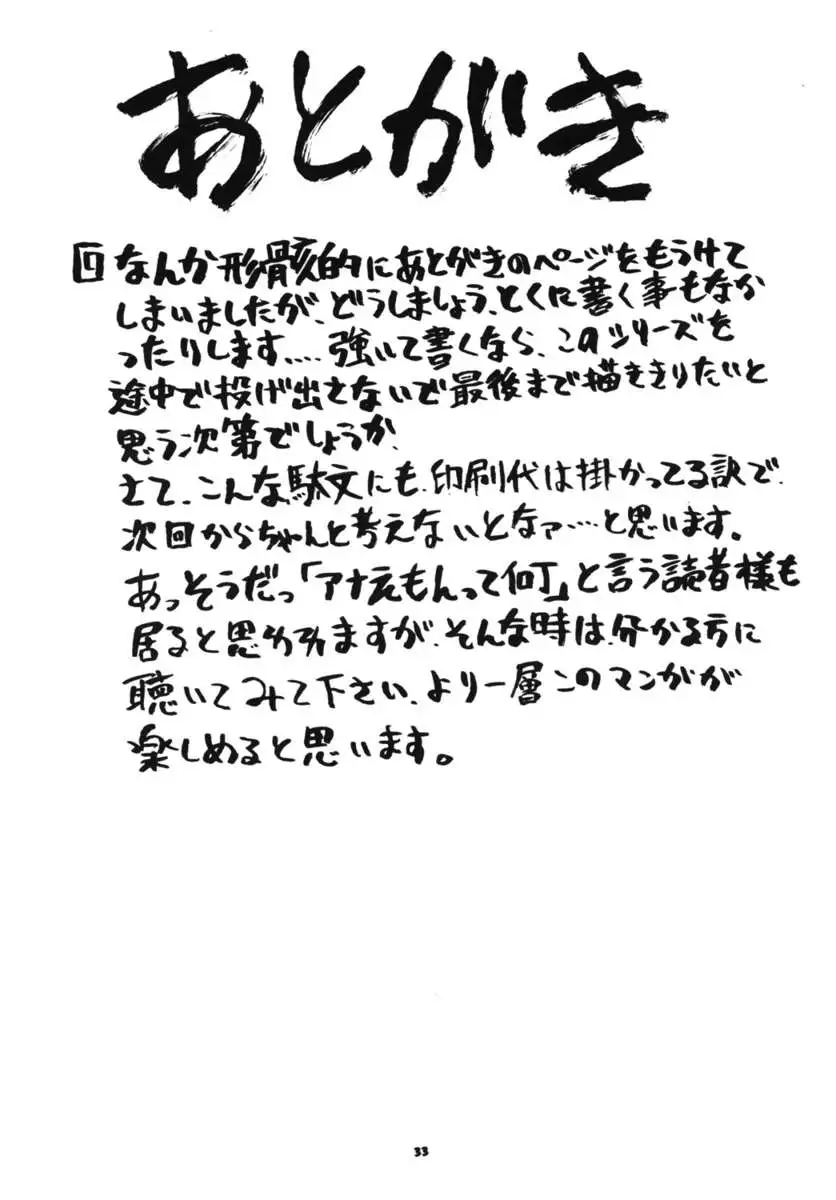 あとがき
回なんか形骸的にあとがきのページをもうけて
しまいましたが、どうしましょう、とくに書く事もなか
ったりします.... 強いて書くなら、このシリーズを
途中で投げ出さないで最後まで描ききりたいと
思う次第でしょうか、
さて、こんな駄文にも、印刷代は掛かってる訳で、
次回からちゃんと考えないとなァ…と思います。
あっそうだっ「アナえもんって何」と言う読者様も
居ると思われますが、そんな時は、分かる方に
聴いてみて下さい、より一層このマンガが
楽しめると思います。
33